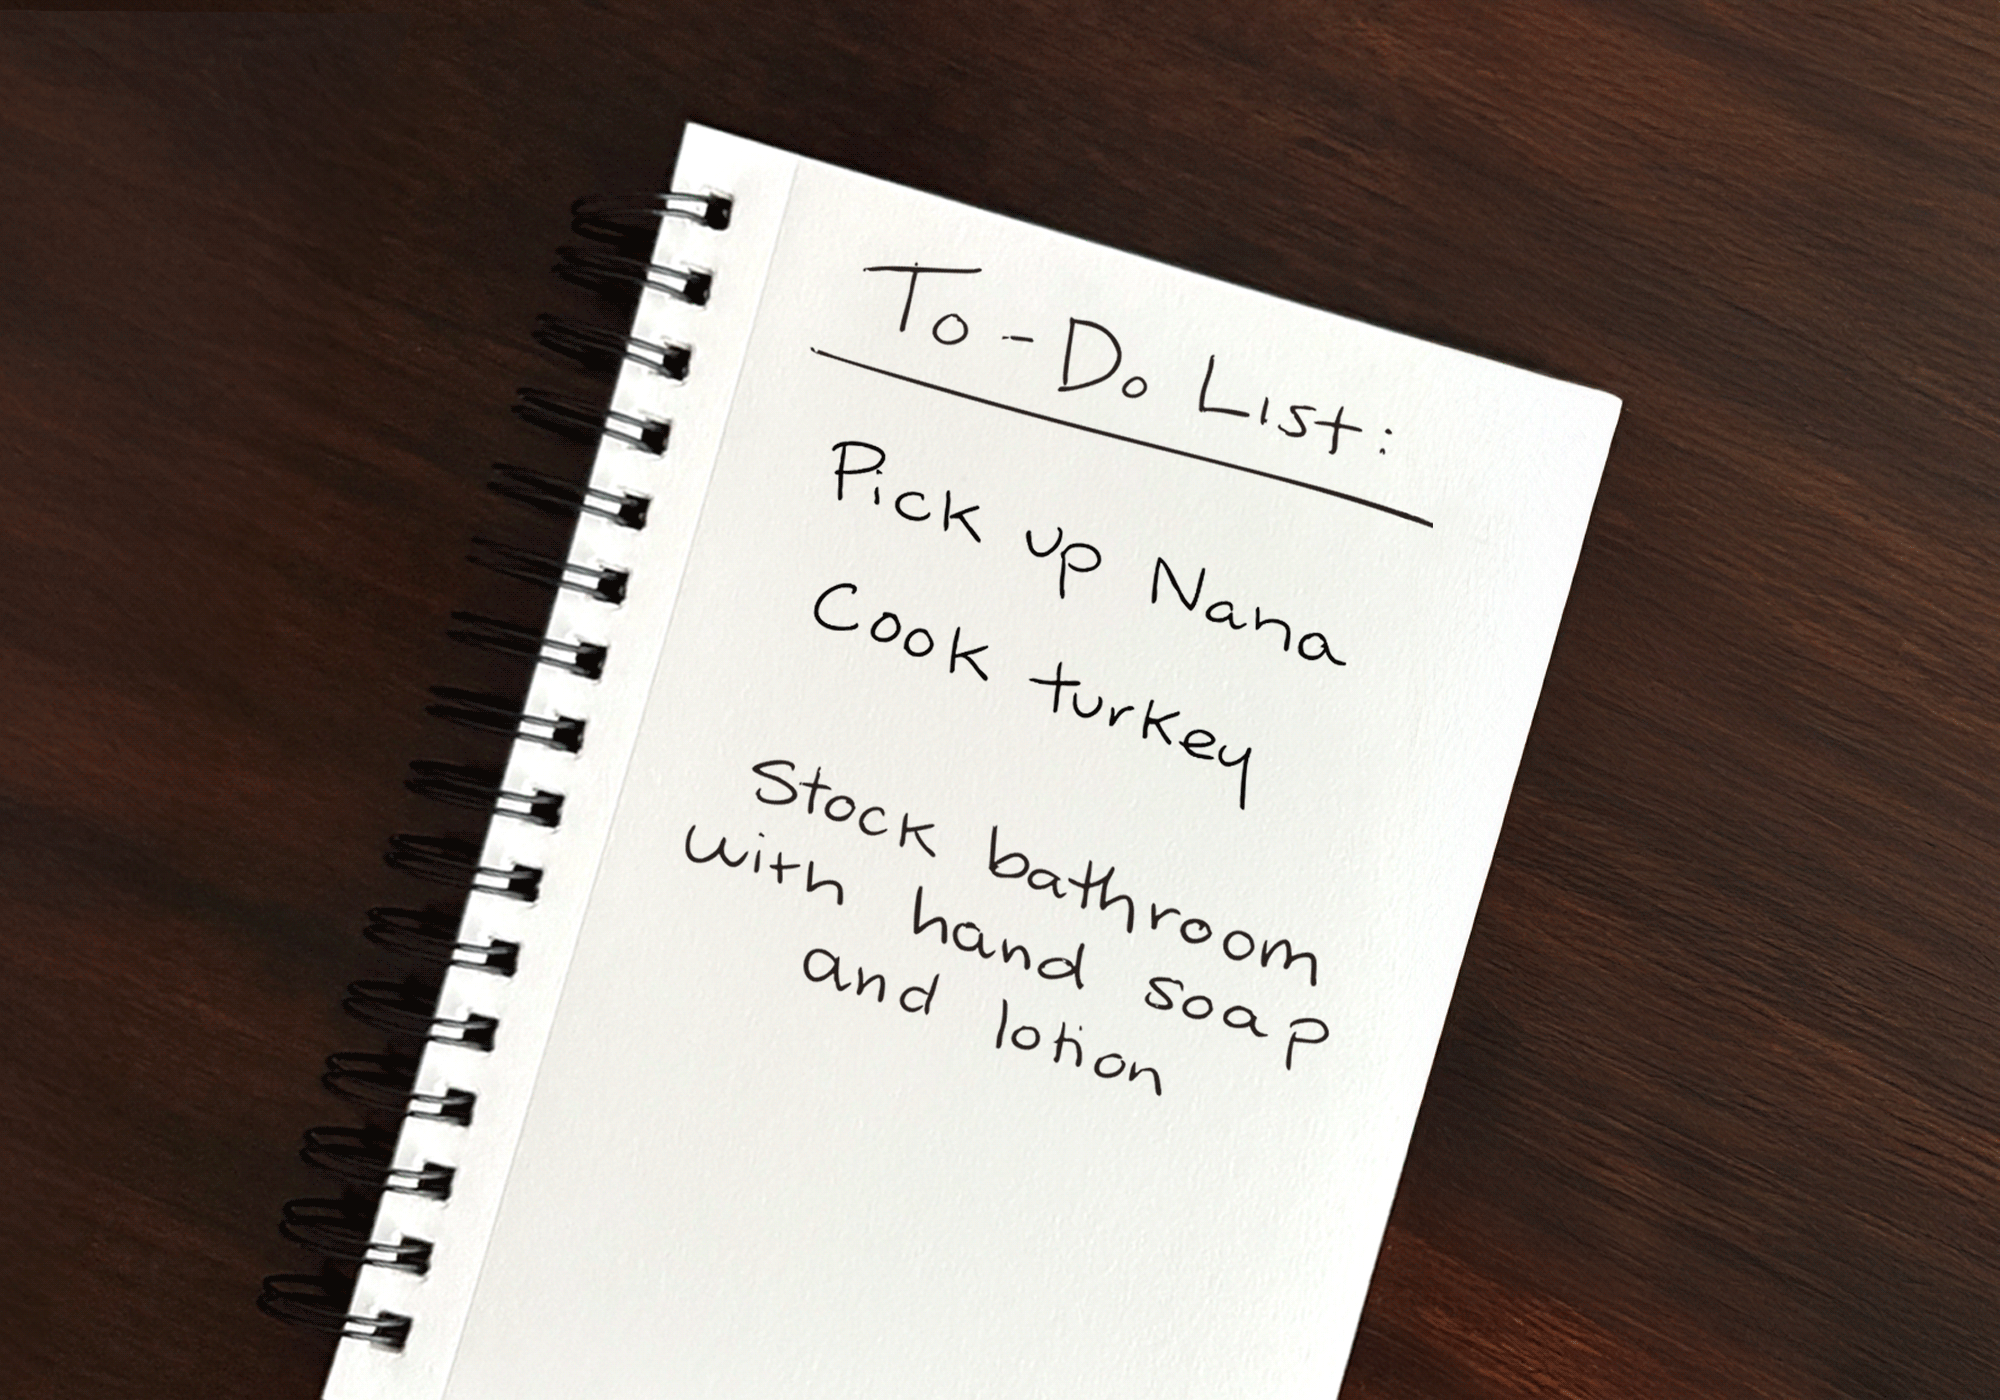 To-Do List:
Pick up Nana
Cook turkey
Stock bathroom
with hand soap
and lotion